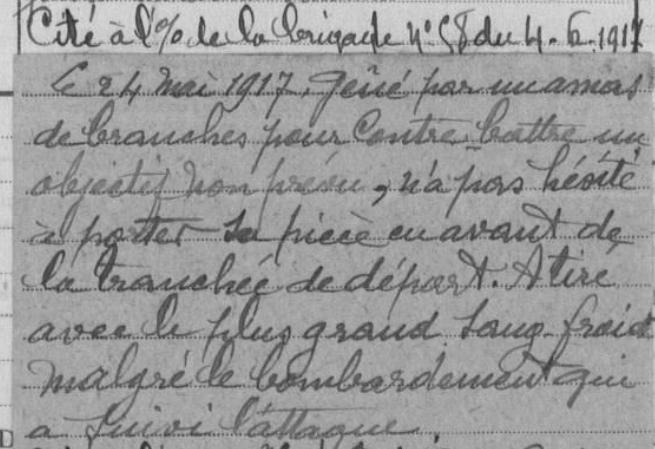 Cité à l'% de la brigade N° 58 du 4.6.1917
Le 24 Mai 1917, Gêné par un amas
de branches pour Contre battre un
objectif non prévu, n'a pas hésité
à porter sa pièce en avant de
la tranchée de départ. A tiré
avec le plus grand Sang-froid
Malgré le bombardement qui
a suivi l'attaque.